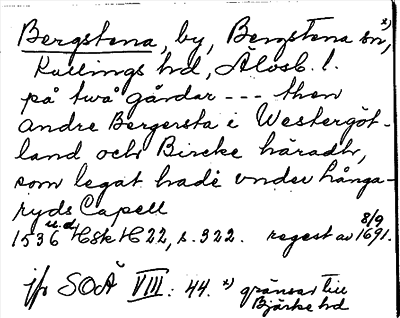 Bergstena, by, Bergstena sn, x)
Kullings hd, Älvsb. l.
på två gårdar --- then
andre Bergersta i Westergöt-
land och Bircke häradh,
som legat hade vnder hånga-
ryds Capell
1536 u.d. HSH C22, s. 322. regest av 8/9 1691.
jfr SOÄ VIII: 44. x) gränsar till
Bjärke hd